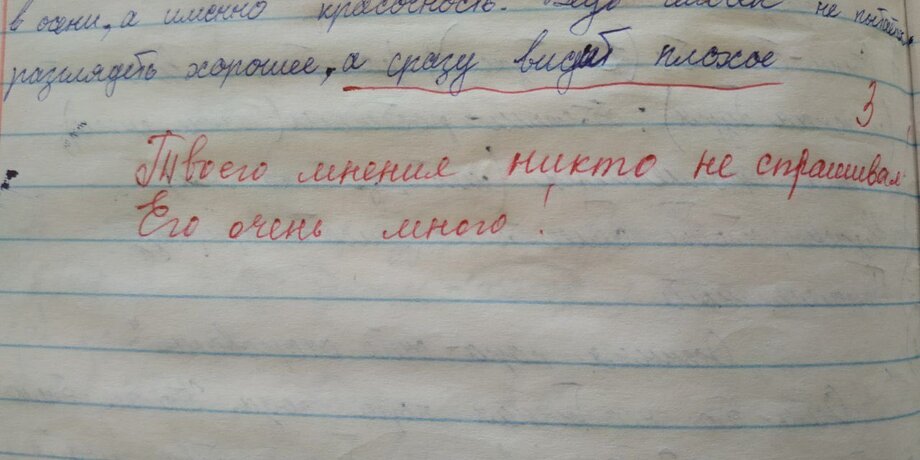 в осени, а именно красочность. Ведь не пытаясь
разглядеть хорошее, а сразу видят плохое
3
Твоего мнения никто не спрашивал
Его очень много!